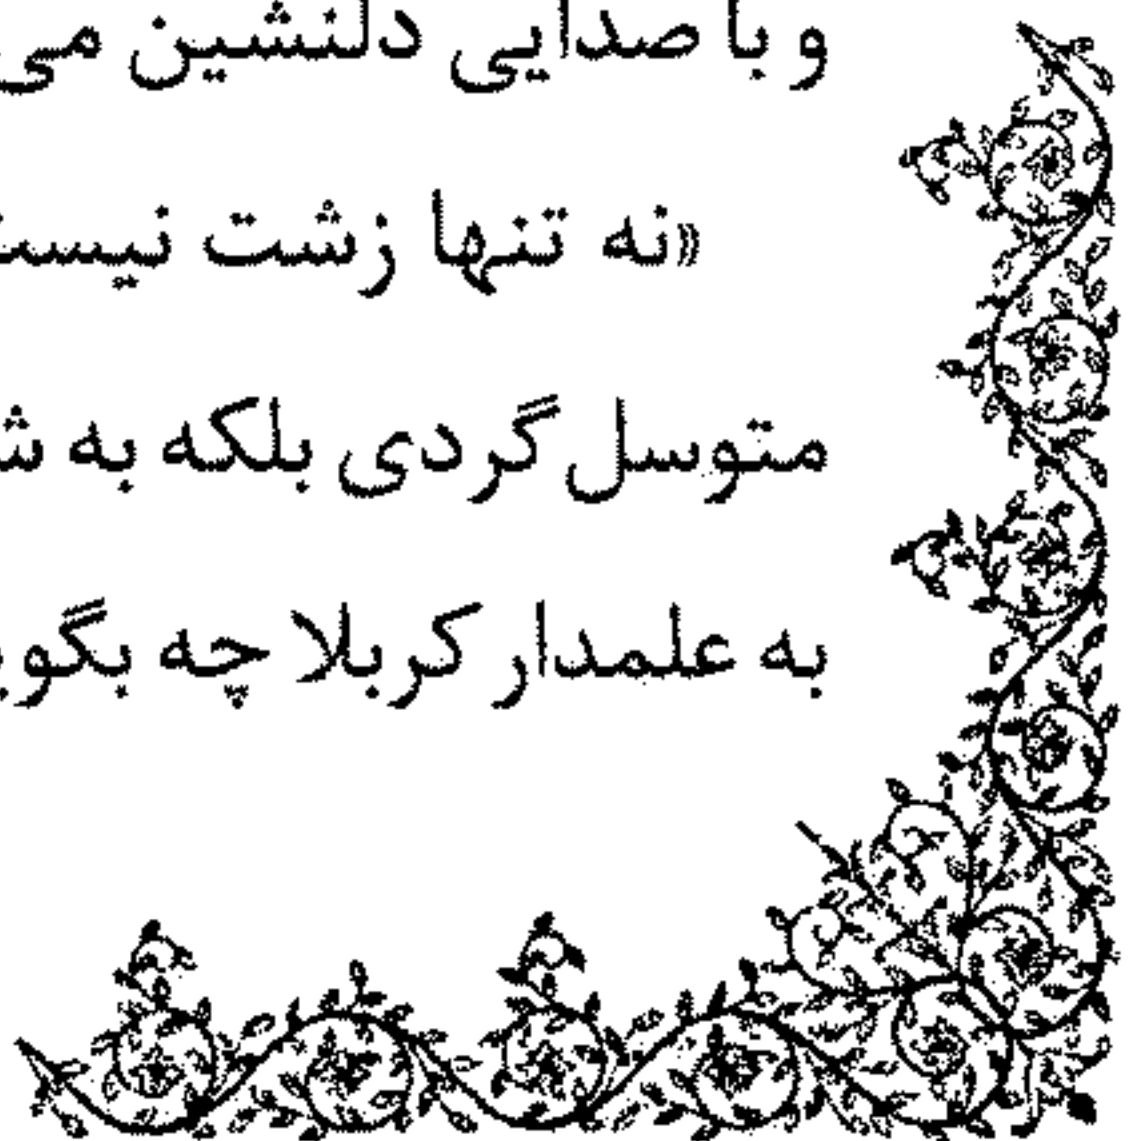 و با صدایی دلنشین می
«نه تنها زشت
متوسل گردی بلکه به
به علمدار کربلا چه